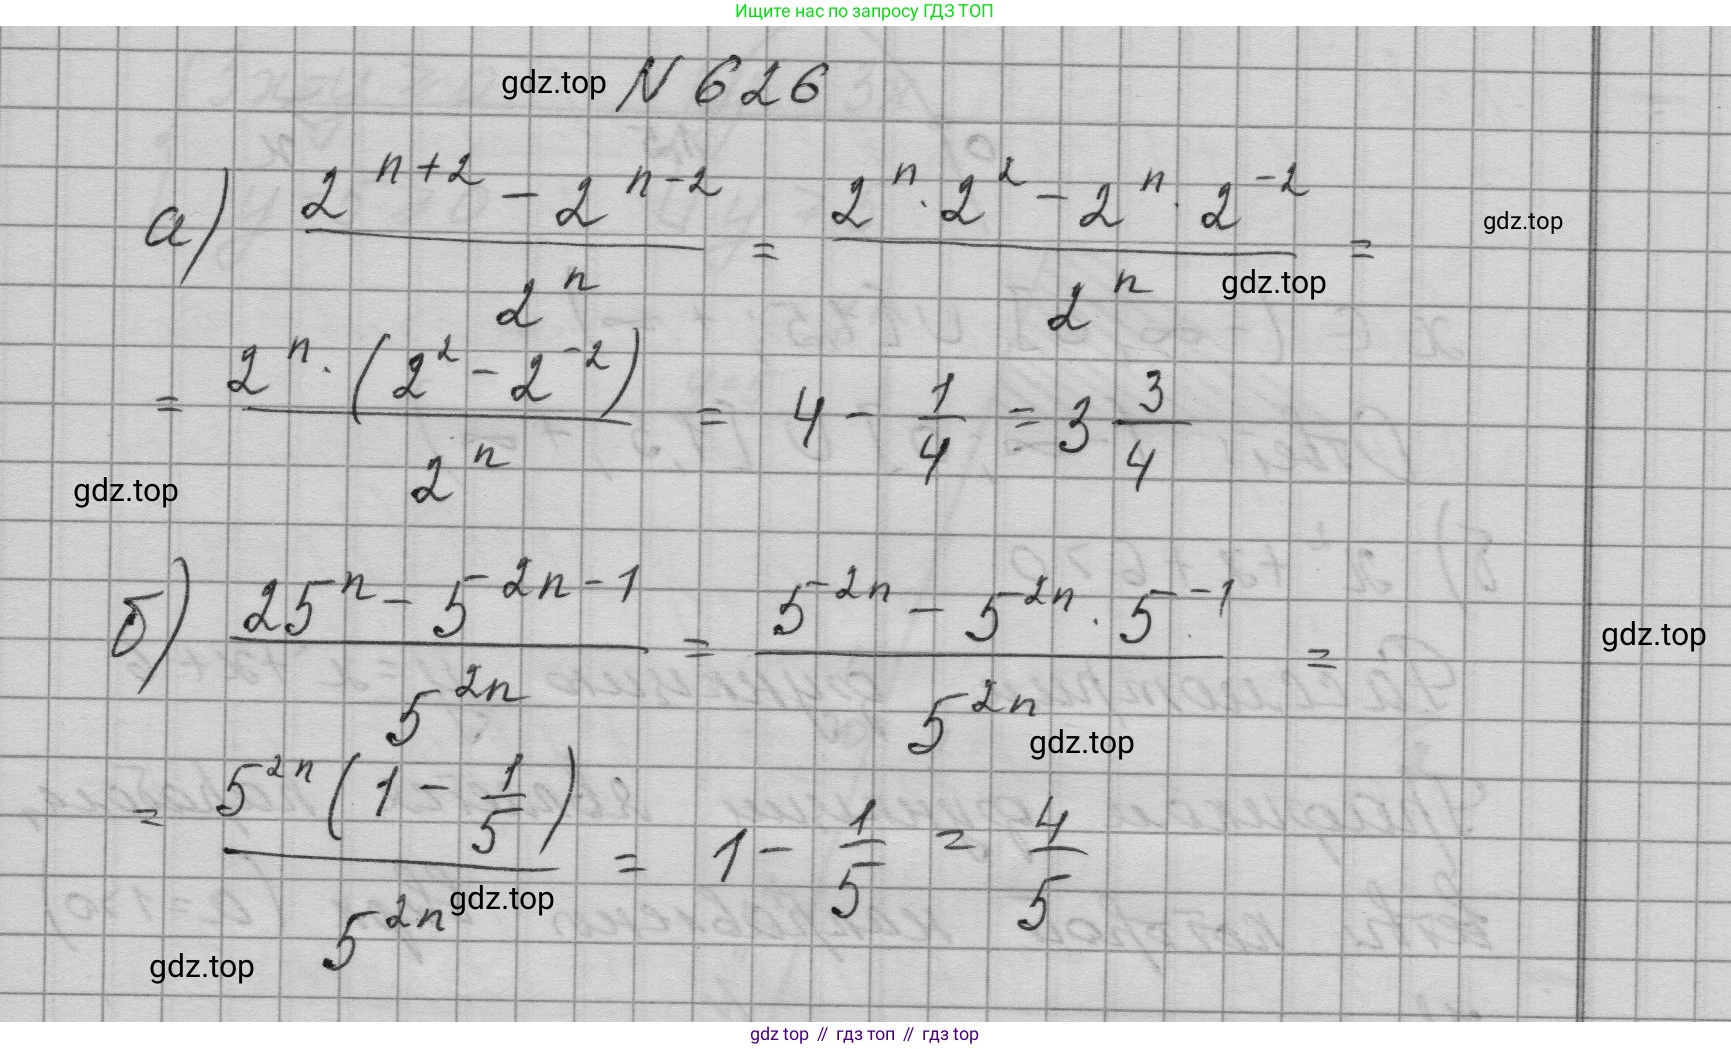 Ищите нас по запросу ГДЗ ТОП
gdz.top N 626
а) (2^(n+2) - 2^(n-2)) / 2^n = (2^n · 2^2 - 2^n · 2^(-2)) / 2^n =
gdz.top
gdz.top
= (2^n · (2^2 - 2^(-2))) / 2^n = 4 - 1/4 = 3 3/4
gdz.top
б) (25^n - 5^(2n-1)) / 5^(2n) = (5^(2n) - 5^(2n) · 5^(-1)) / 5^(2n) =
gdz.top
gdz.top
= (5^(2n) (1 - 1/5)) / 5^(2n) = 1 - 1/5 = 4/5
gdz.top
gdz.top
gdz top // гдз топ // гдз top